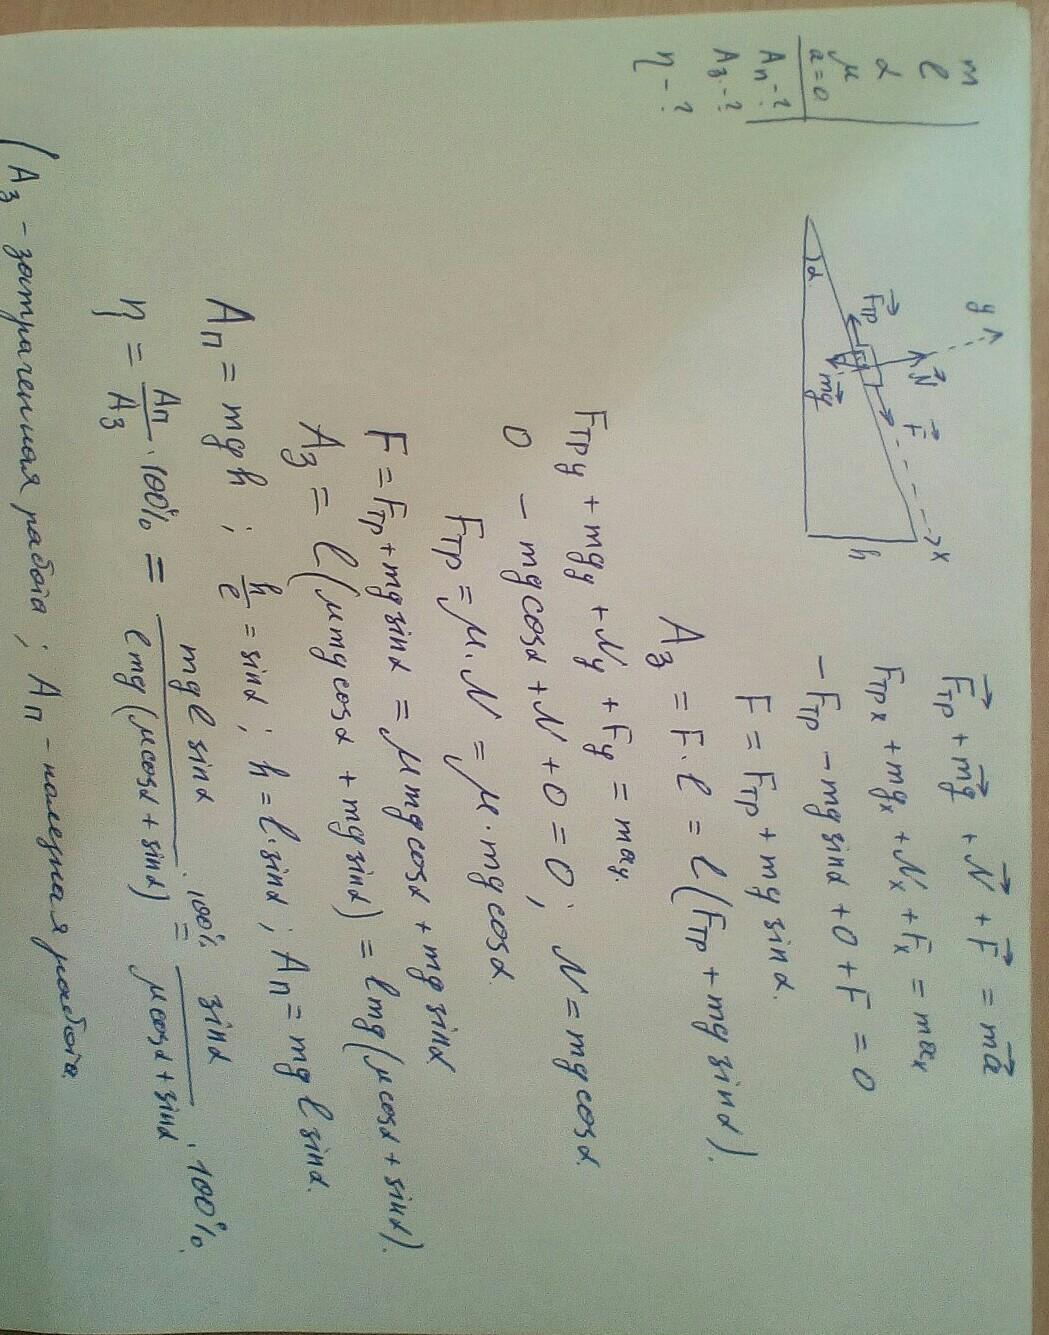 m
l
α
μ
a=0
Aп-?
Aз-?
η-?
y
N
F
x
Fтр
mg
α
h
Fтр + mg + N + F = ma
Fтрx + mgx + Nx + Fx = max
-Fтр - mg sinα + 0 + F = 0
F = Fтр + mg sinα.
Aз = F·l = l(Fтр + mg sinα).
Fтрy + mgy + Ny + Fy = may.
0 - mg cosα + N + 0 = 0; N = mg cosα.
Fтр = μ·N = μ·mg cosα.
F = Fтр + mg sinα = μmg cosα + mg sinα
Aз = l(μmg cosα + mg sinα) = lmg(μcosα + sinα).
Aп = mgh; h/l = sinα; h = l·sinα; Aп = mg l sinα.
η = Aп/Aз · 100% = mg l sinα / lmg(μcosα + sinα) · 100% = sinα / μcosα + sinα · 100%.
(Aз - затраченная работа; Aп - полезная работа.